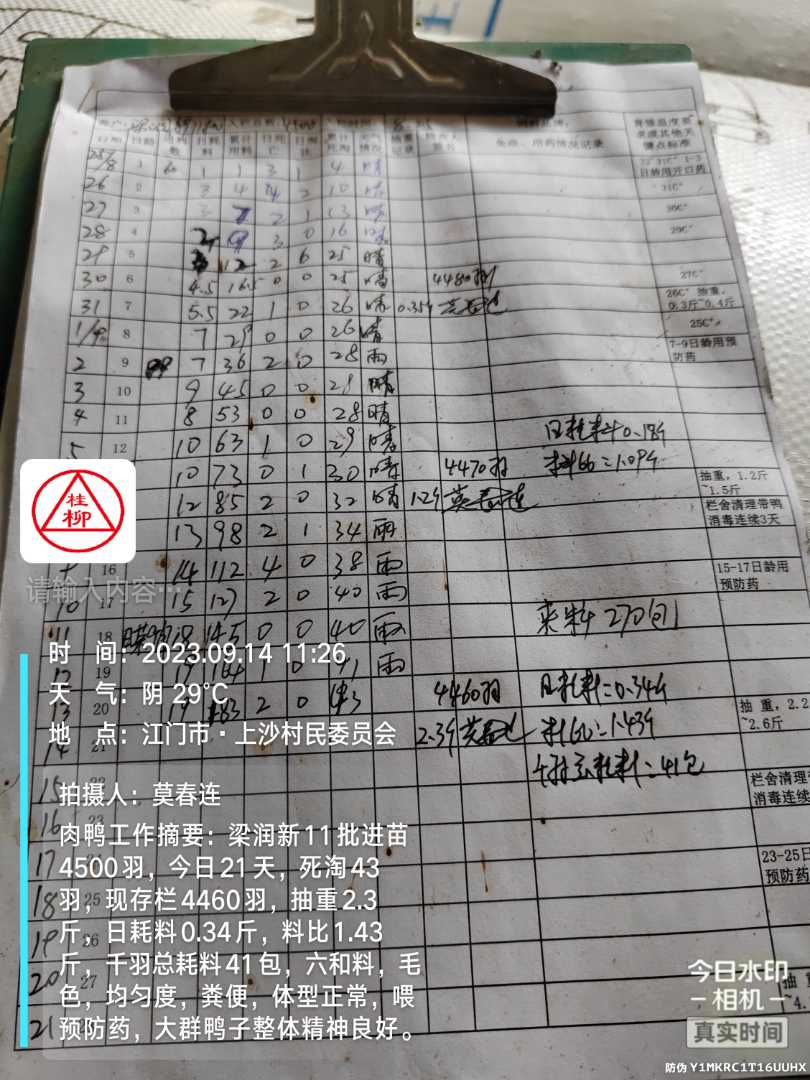 日期
日耗料
免疫、用药情况记录
育雏温度要求或其他关键点标准
25/8 1 1 1 3 1 4 晴
日龄用开口药
26 2 3 4 4 2 10
31C°
27 3 3 7 2 1 13
30C°
28 4 9 3 0 16
29C°
29 5 12 2 6 25 晴
30 6 4.5 16.5 0 0 25 晴 4480羽
27C°
31 7 5.5 22 1 0 26 晴 0.35斤 莫春连
26C° 抽重,
0.3斤~0.4斤
1/9 8 7 29 0 0 26 晴
25C°
2 9 7 36 2 0 28 雨
7-9日龄用预防药
3 10 9 45 0 0 28 晴
4 11 8 53 0 0 28 晴
日耗料0.18斤
5 12 10 63 1 0 29 晴
料比=1.09斤
10 73 0 1 30 晴 4470羽
抽重, 1.2斤
~1.5斤
12 85 2 0 32 晴 1.2斤 莫春连
栏舍清理带鸭
消毒连续3天
13 98 2 1 34 雨
16 14 112 4 0 38 雨
15-17日龄用
预防药
10 17 15 127 2 0 40 雨
来料270包
11 18 18 145 0 0 40 雨
12 19 19 164 1 0 41 雨
13 20 19 183 2 0 43 4460羽 日耗料=0.34斤
抽重, 2.2
~2.6斤
14 21 2.3斤 莫春连 料比=1.43斤
千羽总耗料=41包
15 22
栏舍清理带
消毒连续
16 23
17
23-25日
预防药
18 25
19 26
20 27
抽重
~4.
21
桂柳
请输入内容…
时 间：2023.09.14 11:26
天 气：阴 29℃
地 点：江门市·上沙村民委员会
拍摄人：莫春连
肉鸭工作摘要：梁润新11批进苗
4500羽，今日21天，死淘43
羽，现存栏4460羽，抽重2.3
斤，日耗料0.34斤，料比1.43
斤，千羽总耗料41包，六和料，毛
色，均匀度，粪便，体型正常，喂
预防药，大群鸭子整体精神良好。
今日水印
相机
真实时间
防伪 Y1MKRC1T16UUHX